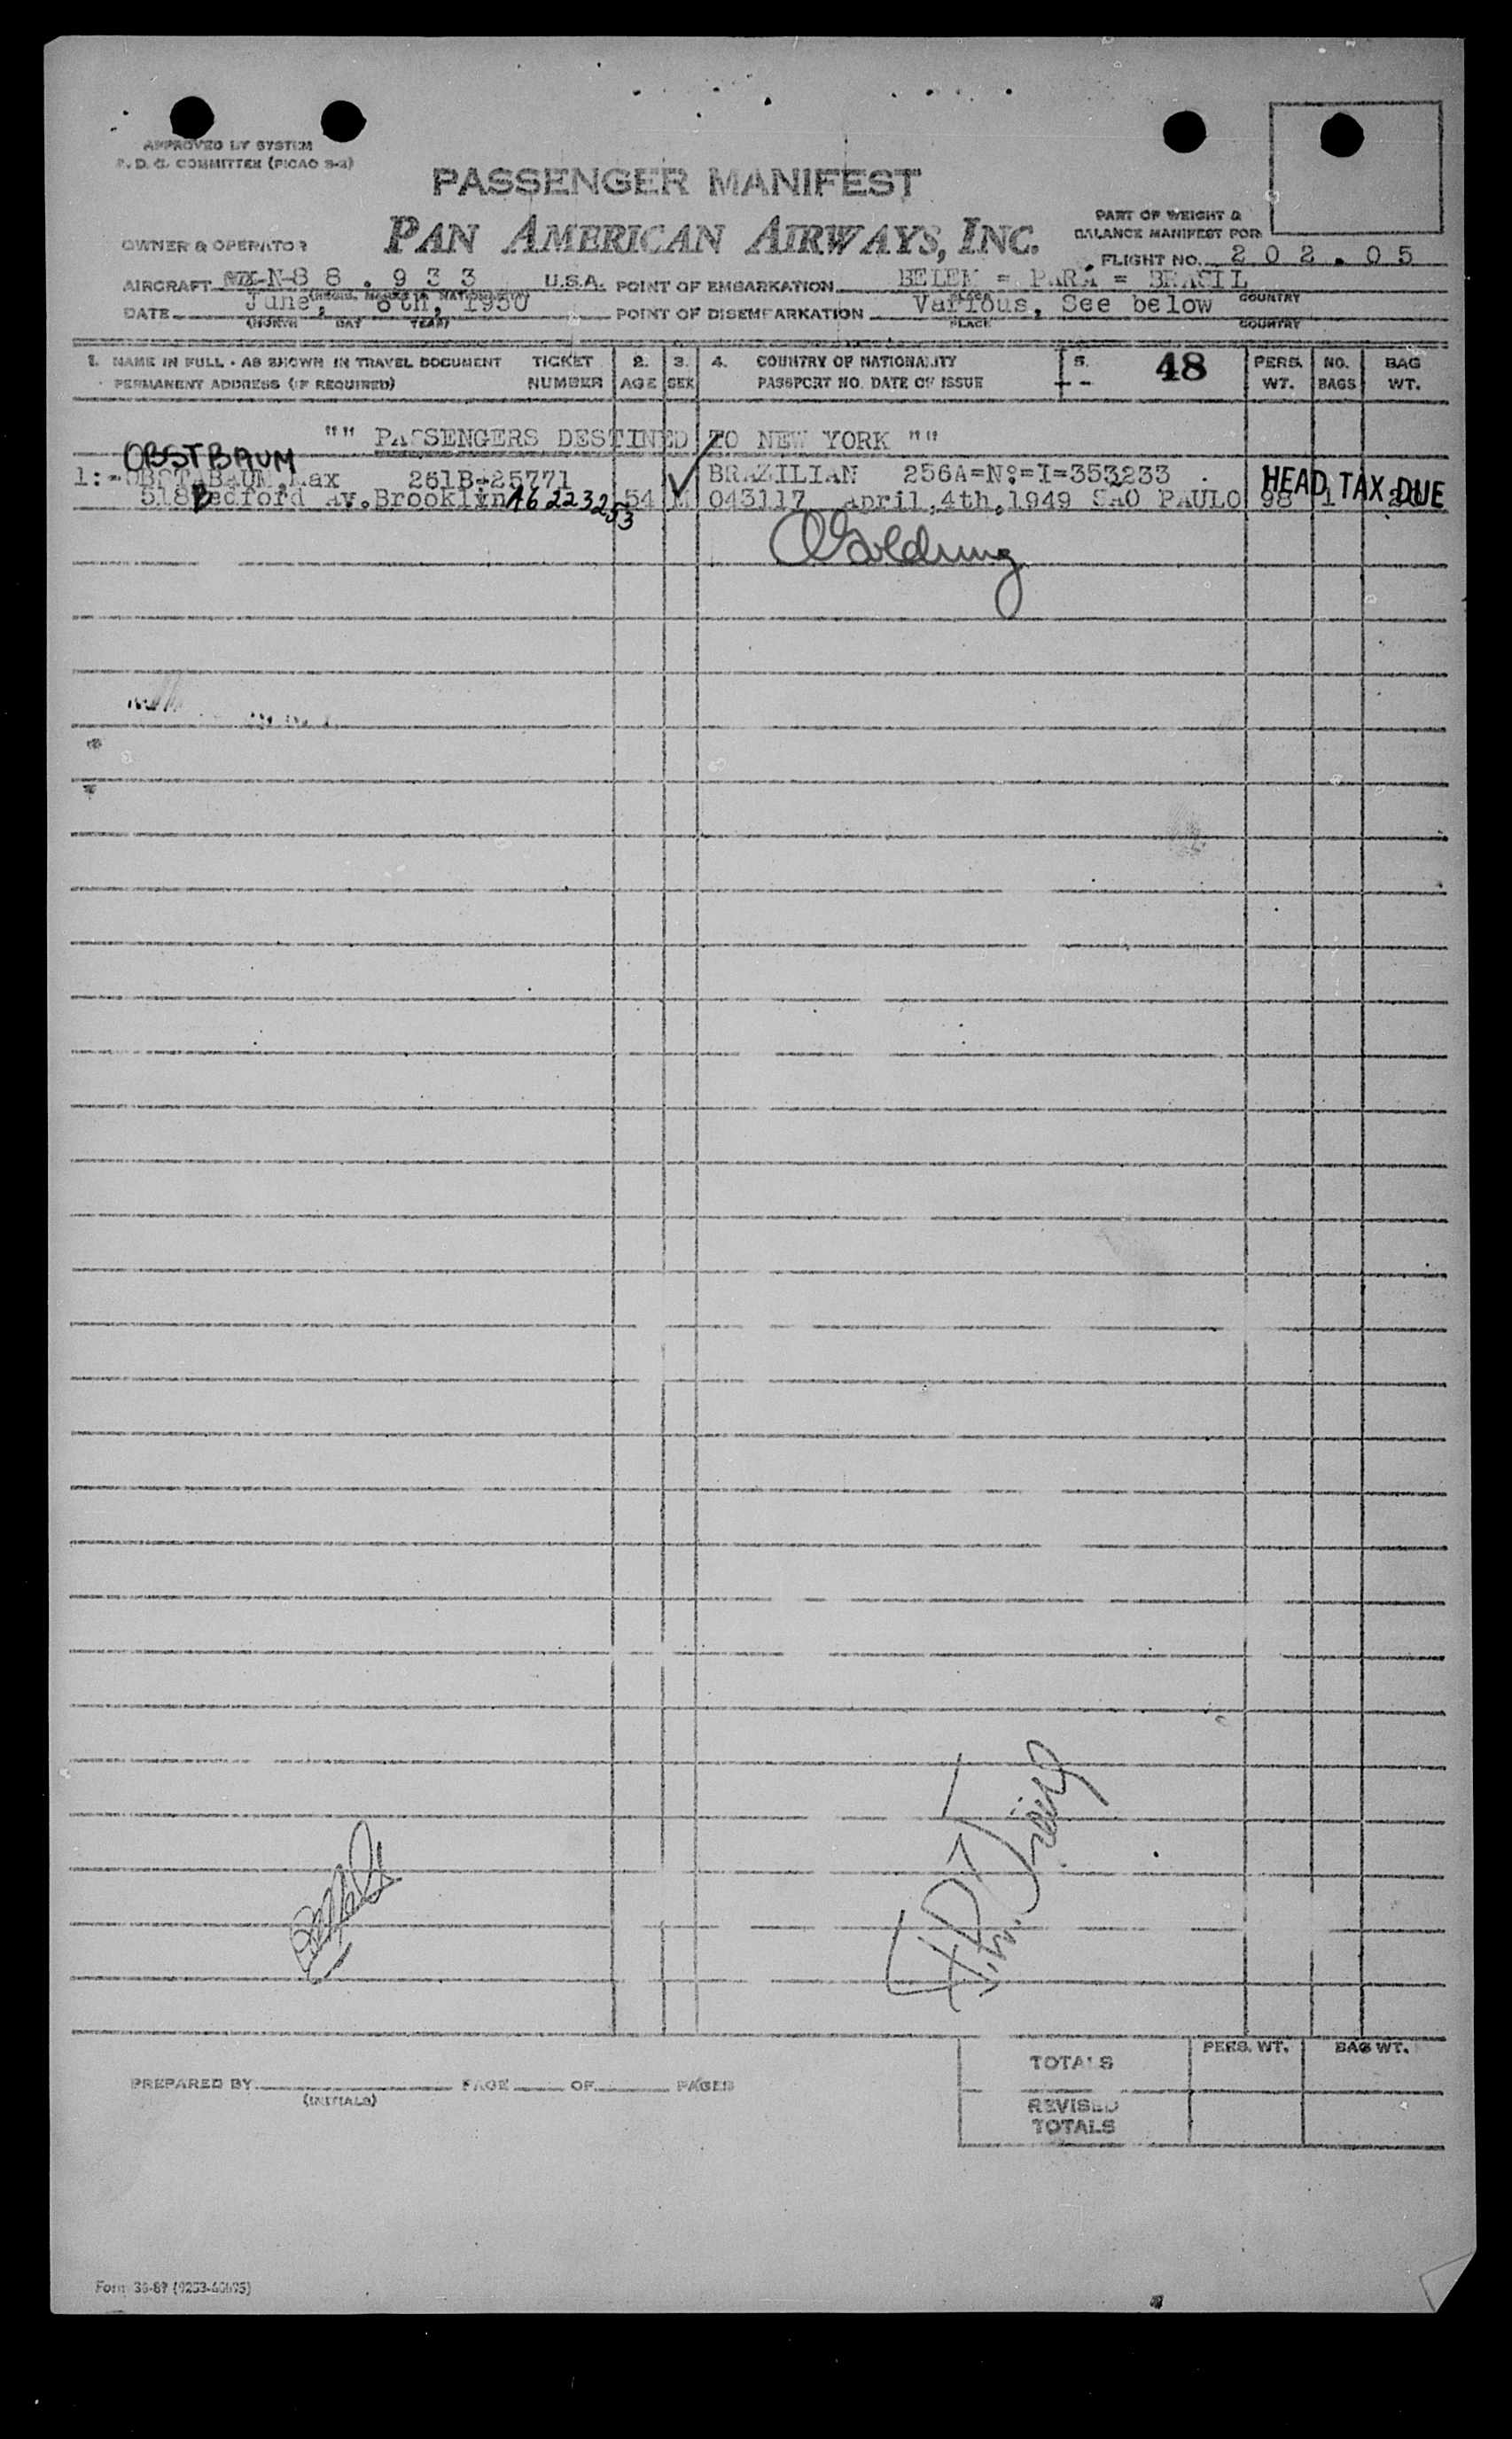 APPROVED BY SYSTEM
P. D. C. COMMITTEE (PICAO S-2)
PASSENGER MANIFEST
PAN AMERICAN AIRWAYS, INC.
PART OF WEIGHT &
BALANCE MANIFEST FOR
OWNER & OPERATOR
FLIGHT NO. 202.05
AIRCRAFT N-88.933 U.S.A. POINT OF EMBARKATION BELEM = PARÁ = BRASIL
(REGIS. MARKS & NATIONALITY) PLACE COUNTRY
DATE June, 8th, 1950 POINT OF DISEMBARKATION Various, See below
(MONTH DAY YEAR) PLACE COUNTRY
1. NAME IN FULL - AS SHOWN IN TRAVEL DOCUMENT TICKET 2. 3. 4. COUNTRY OF NATIONALITY 5. 48 PERS. NO. BAG
PERMANENT ADDRESS (IF REQUIRED) NUMBER AGE SEX PASSPORT NO. DATE OF ISSUE WT. BAGS WT.
"" PASSENGERS DESTINED TO NEW YORK ""
OBSTBAUM
1:- OBSTABAUM, Max 261B-25771 BRAZILIAN 256A=Nº=I=353233 HEAD TAX DUE
518 Bedford Av. Brooklin A6 223 253 54 M 043117 April, 4th, 1949 SAO PAULO 98 1
TOTALS PERS. WT. BAG WT.
PREPARED BY PAGE OF PAGES
(INITIALS)
REVISED
TOTALS